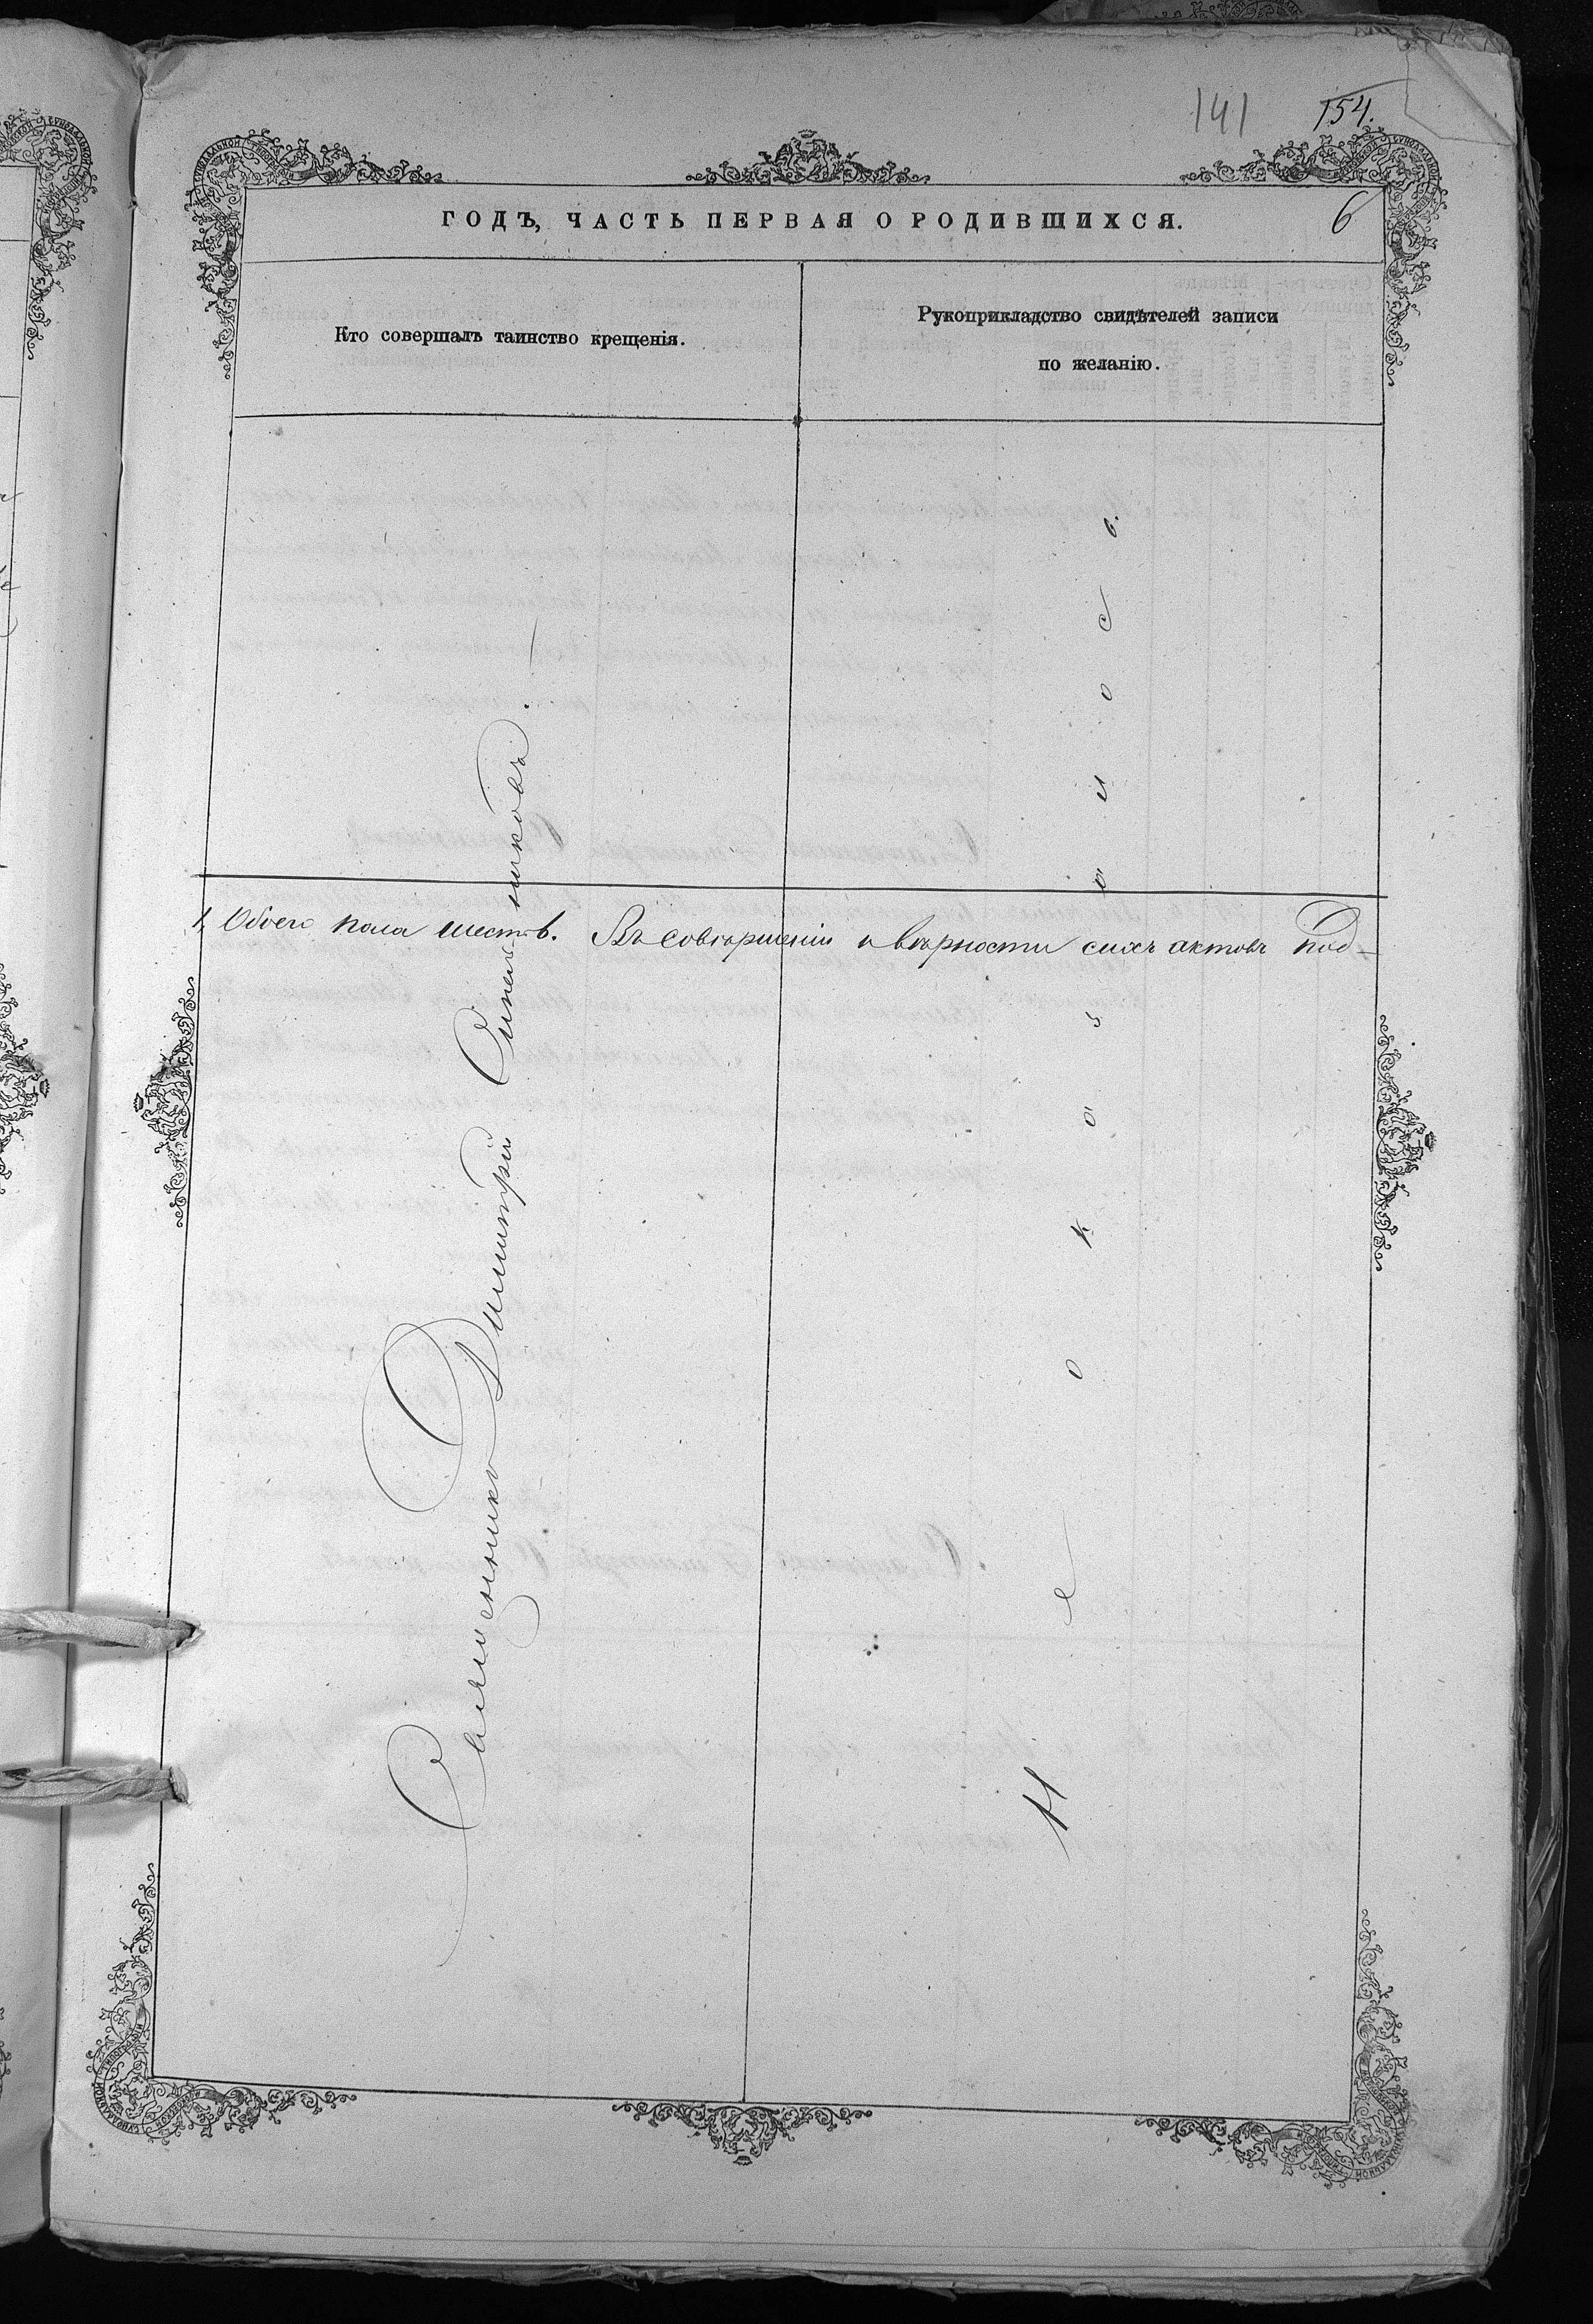 141 154.
ГОДЪ, ЧАСТЬ ПЕРВАЯ О РОДИВШИХСЯ. 6
Кто совершалъ таинство крещенія.
Рукоприкладство свидѣтелей записи
по желанію.
Обоего пола шесть. Въ совершеніи и вѣрности сихъ актовъ под-
Священникъ Димитрій Синельниковъ.